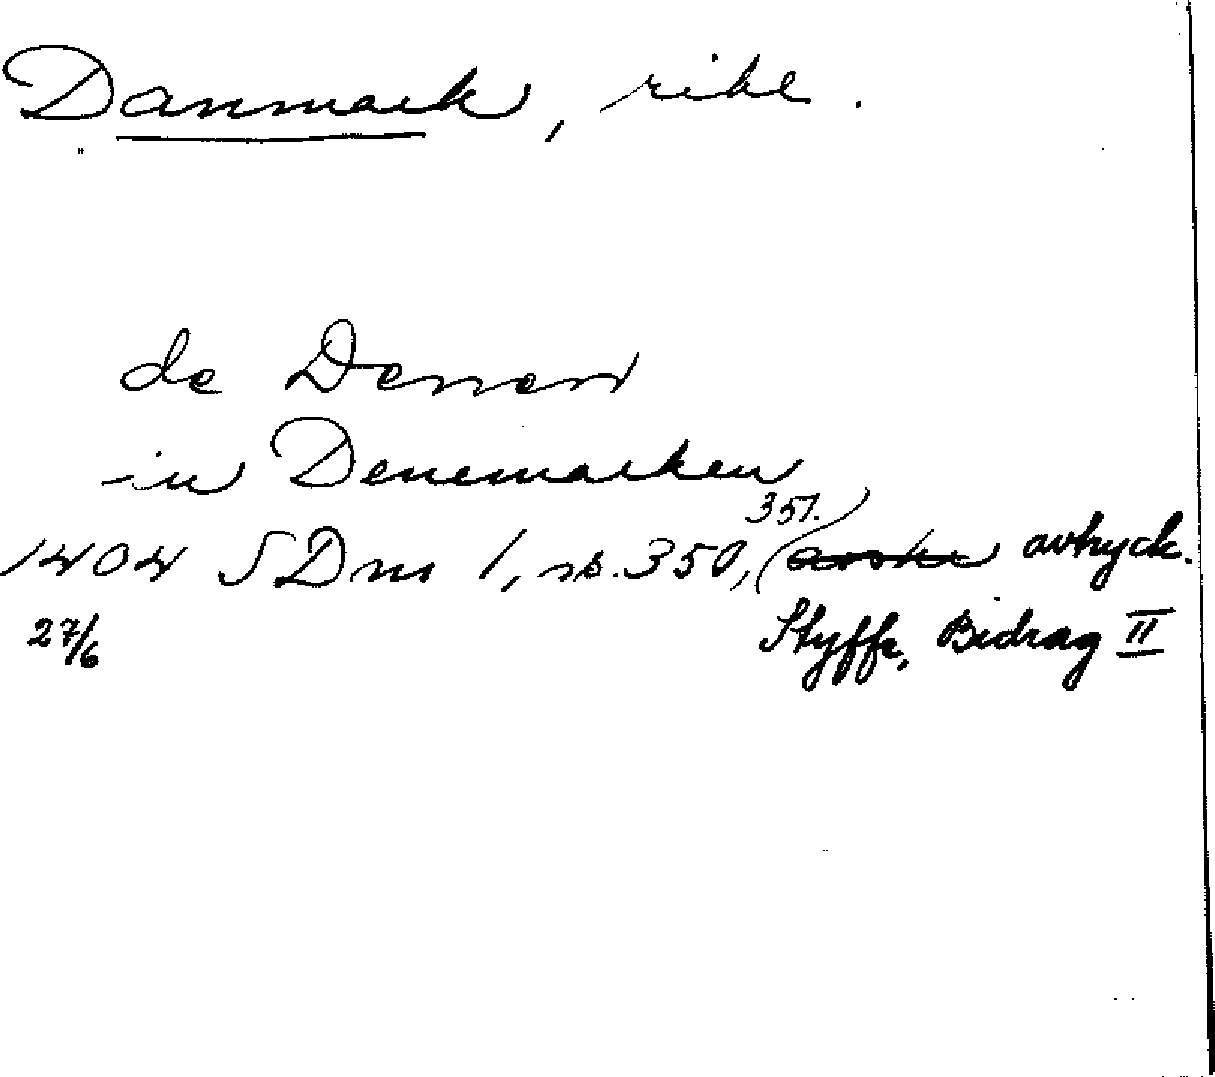 Danmark, rike.
de Denen
in Denemarken
351.
1404 SDns 1, nr. 350, ( avtryck.
27/6 Styffe, Bidrag II